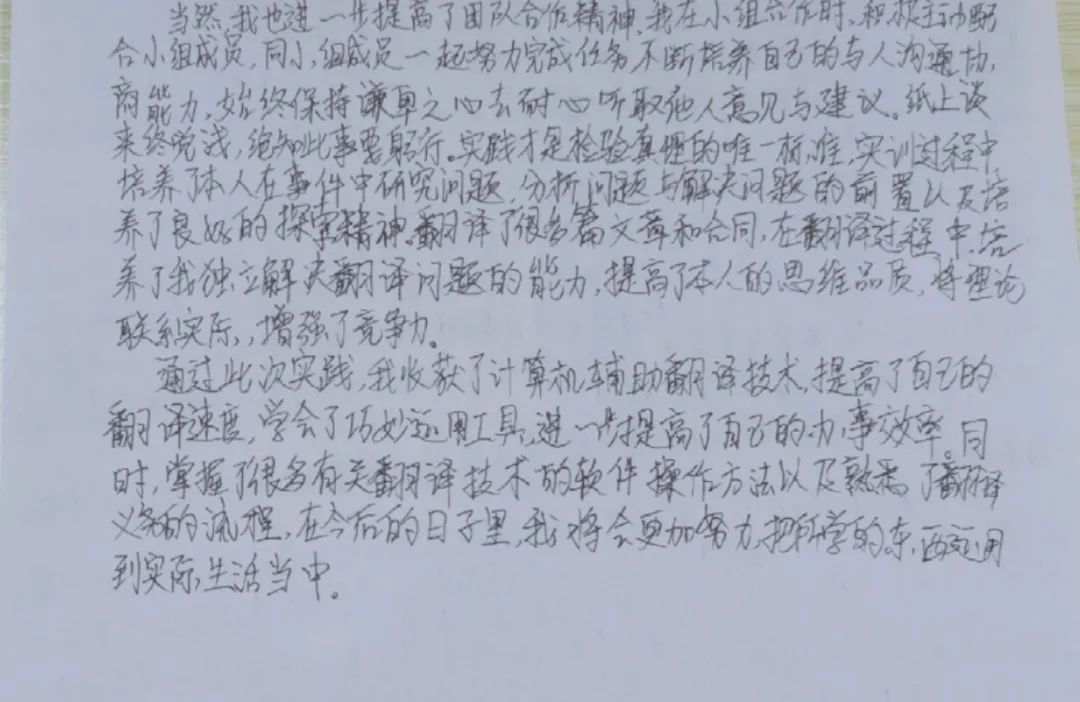 当然,我也进一步提高了团队合作精神,我在小组合作时,积极主动配
合小组成员,同小组成员一起努力完成任务,不断培养自己的与人沟通协
商能力,始终保持谦卑之心去耐心听取他人意见与建议。纸上谈
来终觉浅,绝知此事要躬行。实践才是检验真理的唯一标准,实训过程中
培养了本人在事件中研究问题,分析问题与解决问题的前置以及培
养了良好的探究精神。翻译了很多篇文章和合同,在翻译过程中培
养了我独立解决翻译问题的能力,提高了本人的思维品质,将理论
联系实际,,增强了竞争力。
通过此次实践,我收获了计算机辅助翻译技术,提高了自己的
翻译速度,学会了巧妙运用工具,进一步提高了自己的办事效率。同
时,掌握了很多有关翻译技术的软件操作方法以及熟悉了翻译
义务的流程,在今后的日子里,我将会更加努力,把所学的东西运用
到实际生活当中。